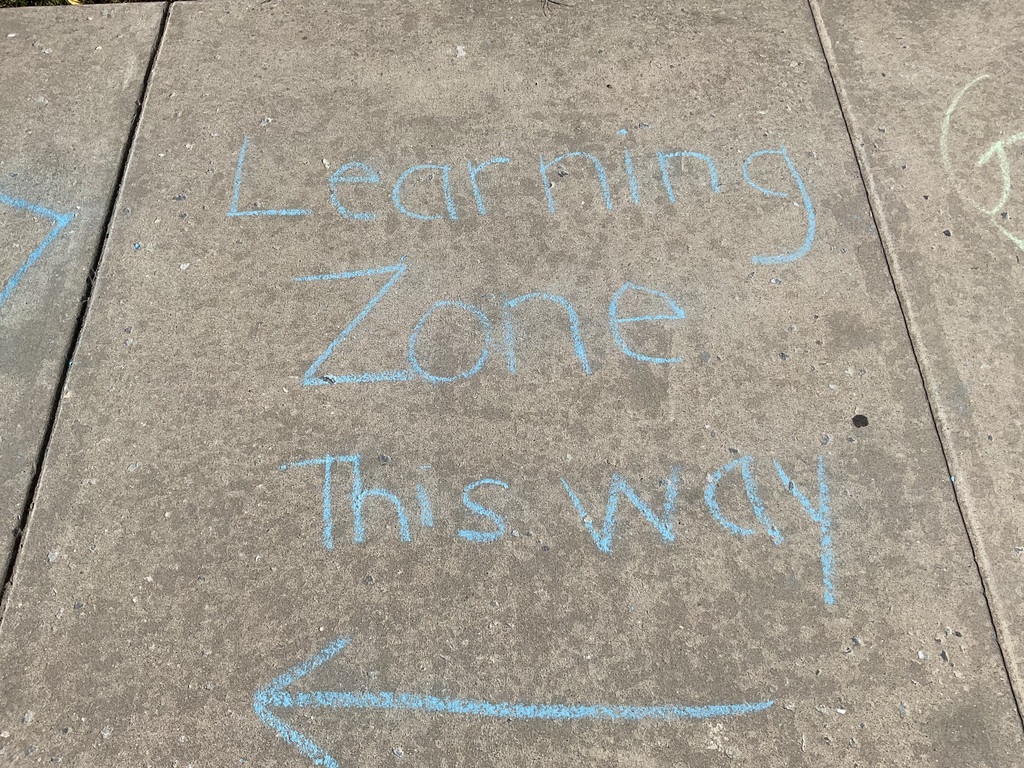 Learning
Zone
This way